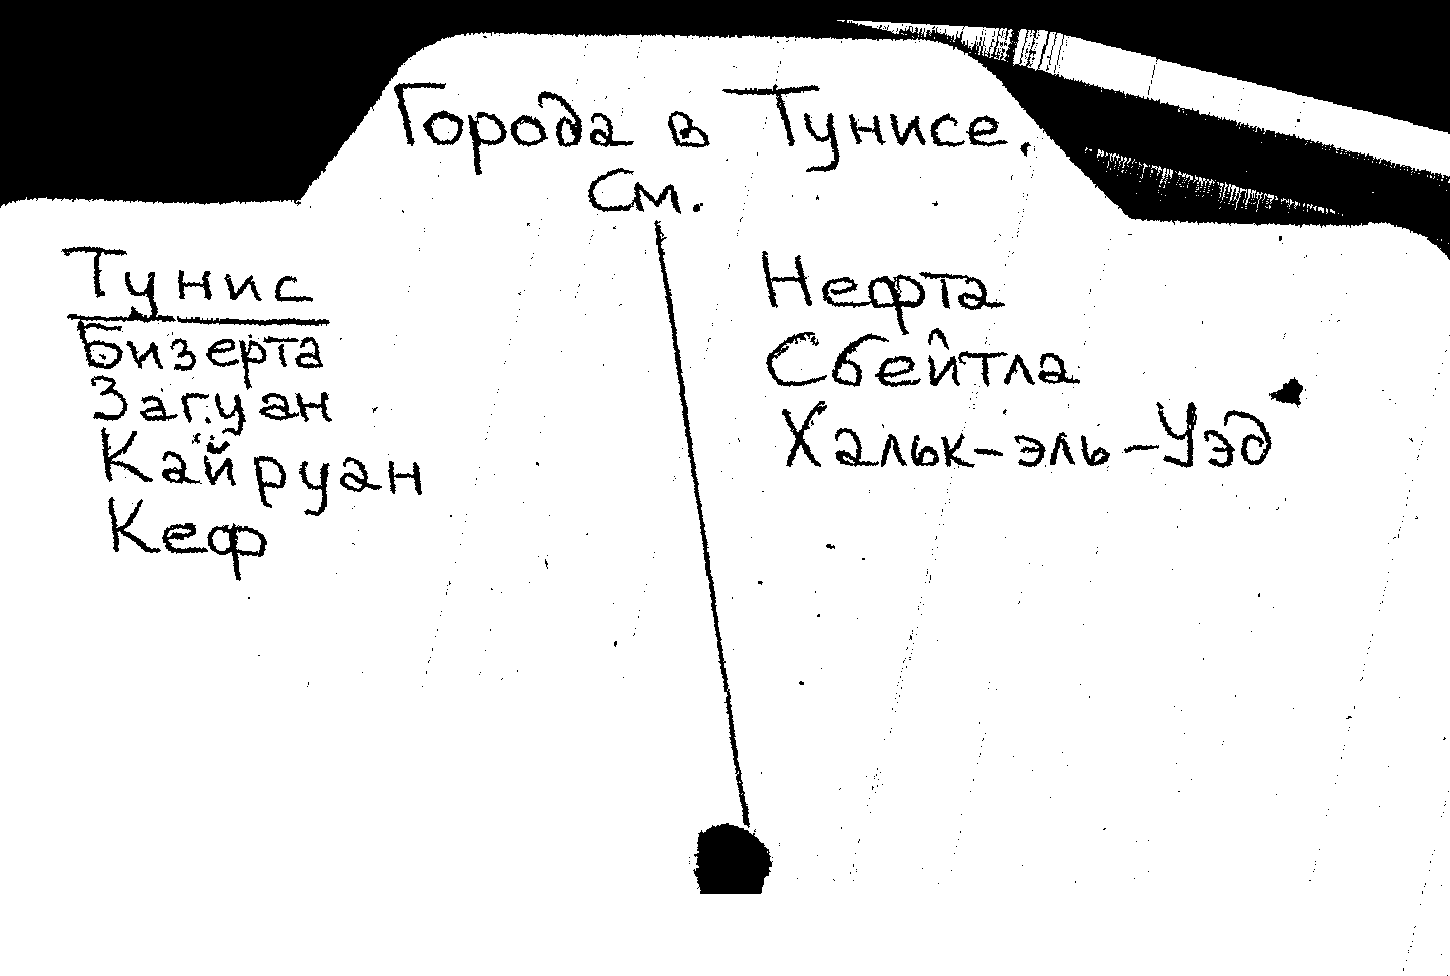 Города в Тунисе.
См.
Тунис
Бизерта
Загуан
Кайруан
Кеф
Нефта
Сбейтла
Хальк-эль-Уэд